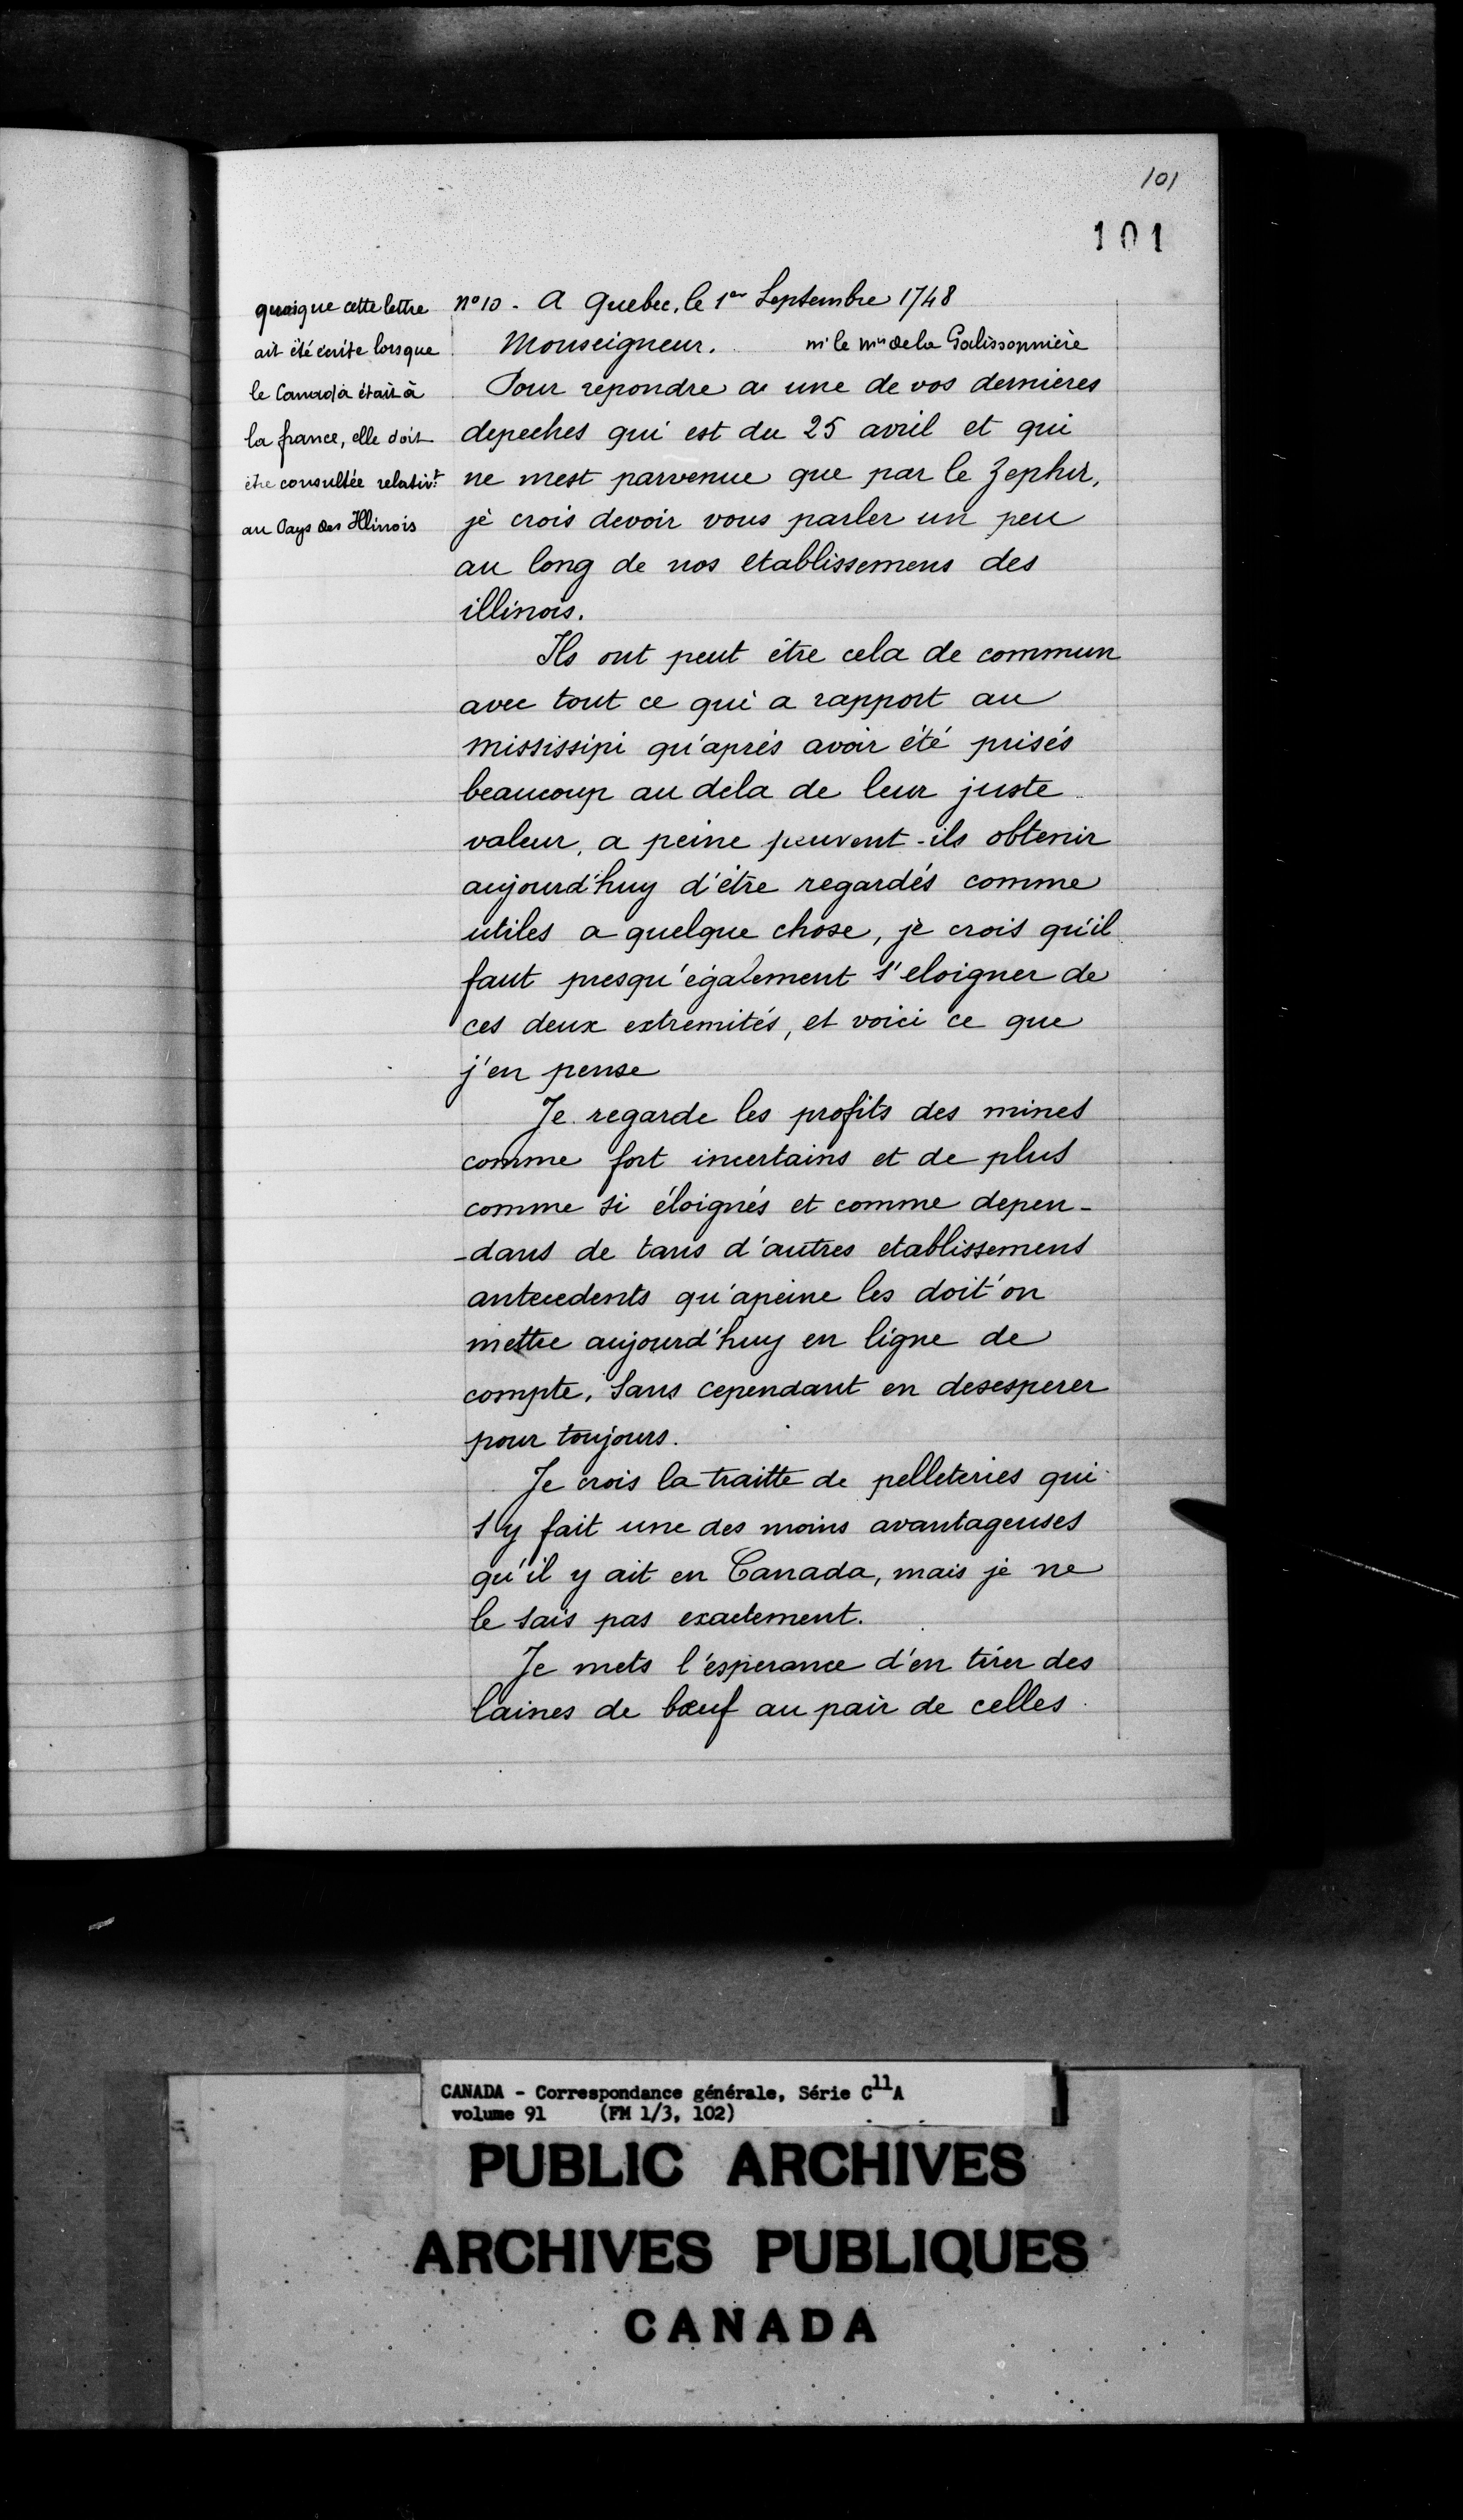 101
101
quoique cette lettre
ait été écrite lorsque
le Canada était à
la france, elle doit
être consultée relativt
au Pays des Illinois
no 10 - A Quebec, le 1er Septembre 1748
Monseigneur. mr le mis de la Galissonnière
Pour repondre a une de vos dernieres
depeches qui est du 25 avril et qui
ne mest parvenue que par le Zephir,
je crois devoir vous parler un peu
au long de nos etablissemens des
illinois.
Ils ont peut être cela de commun
avec tout ce qui a rapport au
mississipi qu'aprés avoir été prisés
beaucoup au dela de leur juste
valeur, a peine peuvent-ils obtenir
aujourd'huy d'être regardés comme
utiles a quelque chose, je crois qu'il
faut presqu'également s'eloigner de
ces deux extremités, et voici ce que
j'en pense
Je regarde les profits des mines
comme fort incertains et de plus
comme si éloignés et comme depen-
-dans de tans d'autres etablissemens
antecedents qu'apeine les doit'on
mettre aujourd'huy en ligne de
compte, sans cependant en desesperer
pour toujours.
Je crois la traitte de pelleteries qui
s'y fait une des moins avantageuses
qu'il y ait en Canada, mais je ne
le sais pas exactement.
Je mets l'esperance d'en tirer des
laines de bœuf au pair de celles
CANADA - Correspondance générale, Série C11A
volume 91 (FM 1/3, 102)
PUBLIC ARCHIVES
ARCHIVES PUBLIQUES
CANADA